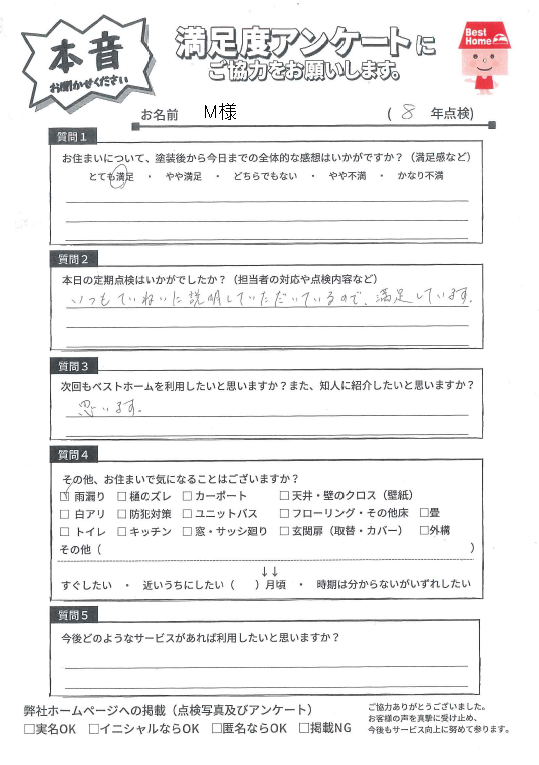 本音
お聞かせください
満足度アンケートに
ご協力をお願いします。
Best
Home
お名前 M様 ( 8 年点検)
質問1
お住まいについて、塗装後から今日までの全体的な感想はいかがですか？（満足感など）
とても満足 ・ やや満足 ・ どちらでもない ・ やや不満 ・ かなり不満
質問2
本日の定期点検はいかがでしたか？（担当者の対応や点検内容など）
いつもていねいに説明していただいているので、満足しています。
質問3
次回もベストホームを利用したいと思いますか？また、知人に紹介したいと思いますか？
思います。
質問4
その他、お住まいで気になることはございますか？
☐ 雨漏り ☐ 樋のズレ ☐ カーポート ☐ 天井・壁のクロス（壁紙）
☐ 白アリ ☐ 防犯対策 ☐ ユニットバス ☐ フローリング・その他床 ☐畳
☐ トイレ ☐ キッチン ☐ 窓・サッシ廻り ☐ 玄関扉（取替・カバー） ☐外構
その他（ ）
↓↓
すぐしたい ・ 近いうちにしたい（ ）月頃 ・ 時期は分からないがいずれしたい
質問5
今後どのようなサービスがあれば利用したいと思いますか？
弊社ホームページへの掲載（点検写真及びアンケート）
☐実名OK ☐イニシャルならOK ☐匿名ならOK ☐掲載NG
ご協力ありがとうございました。
お客様の声を真摯に受け止め、
今後もサービス向上に努めて参ります。